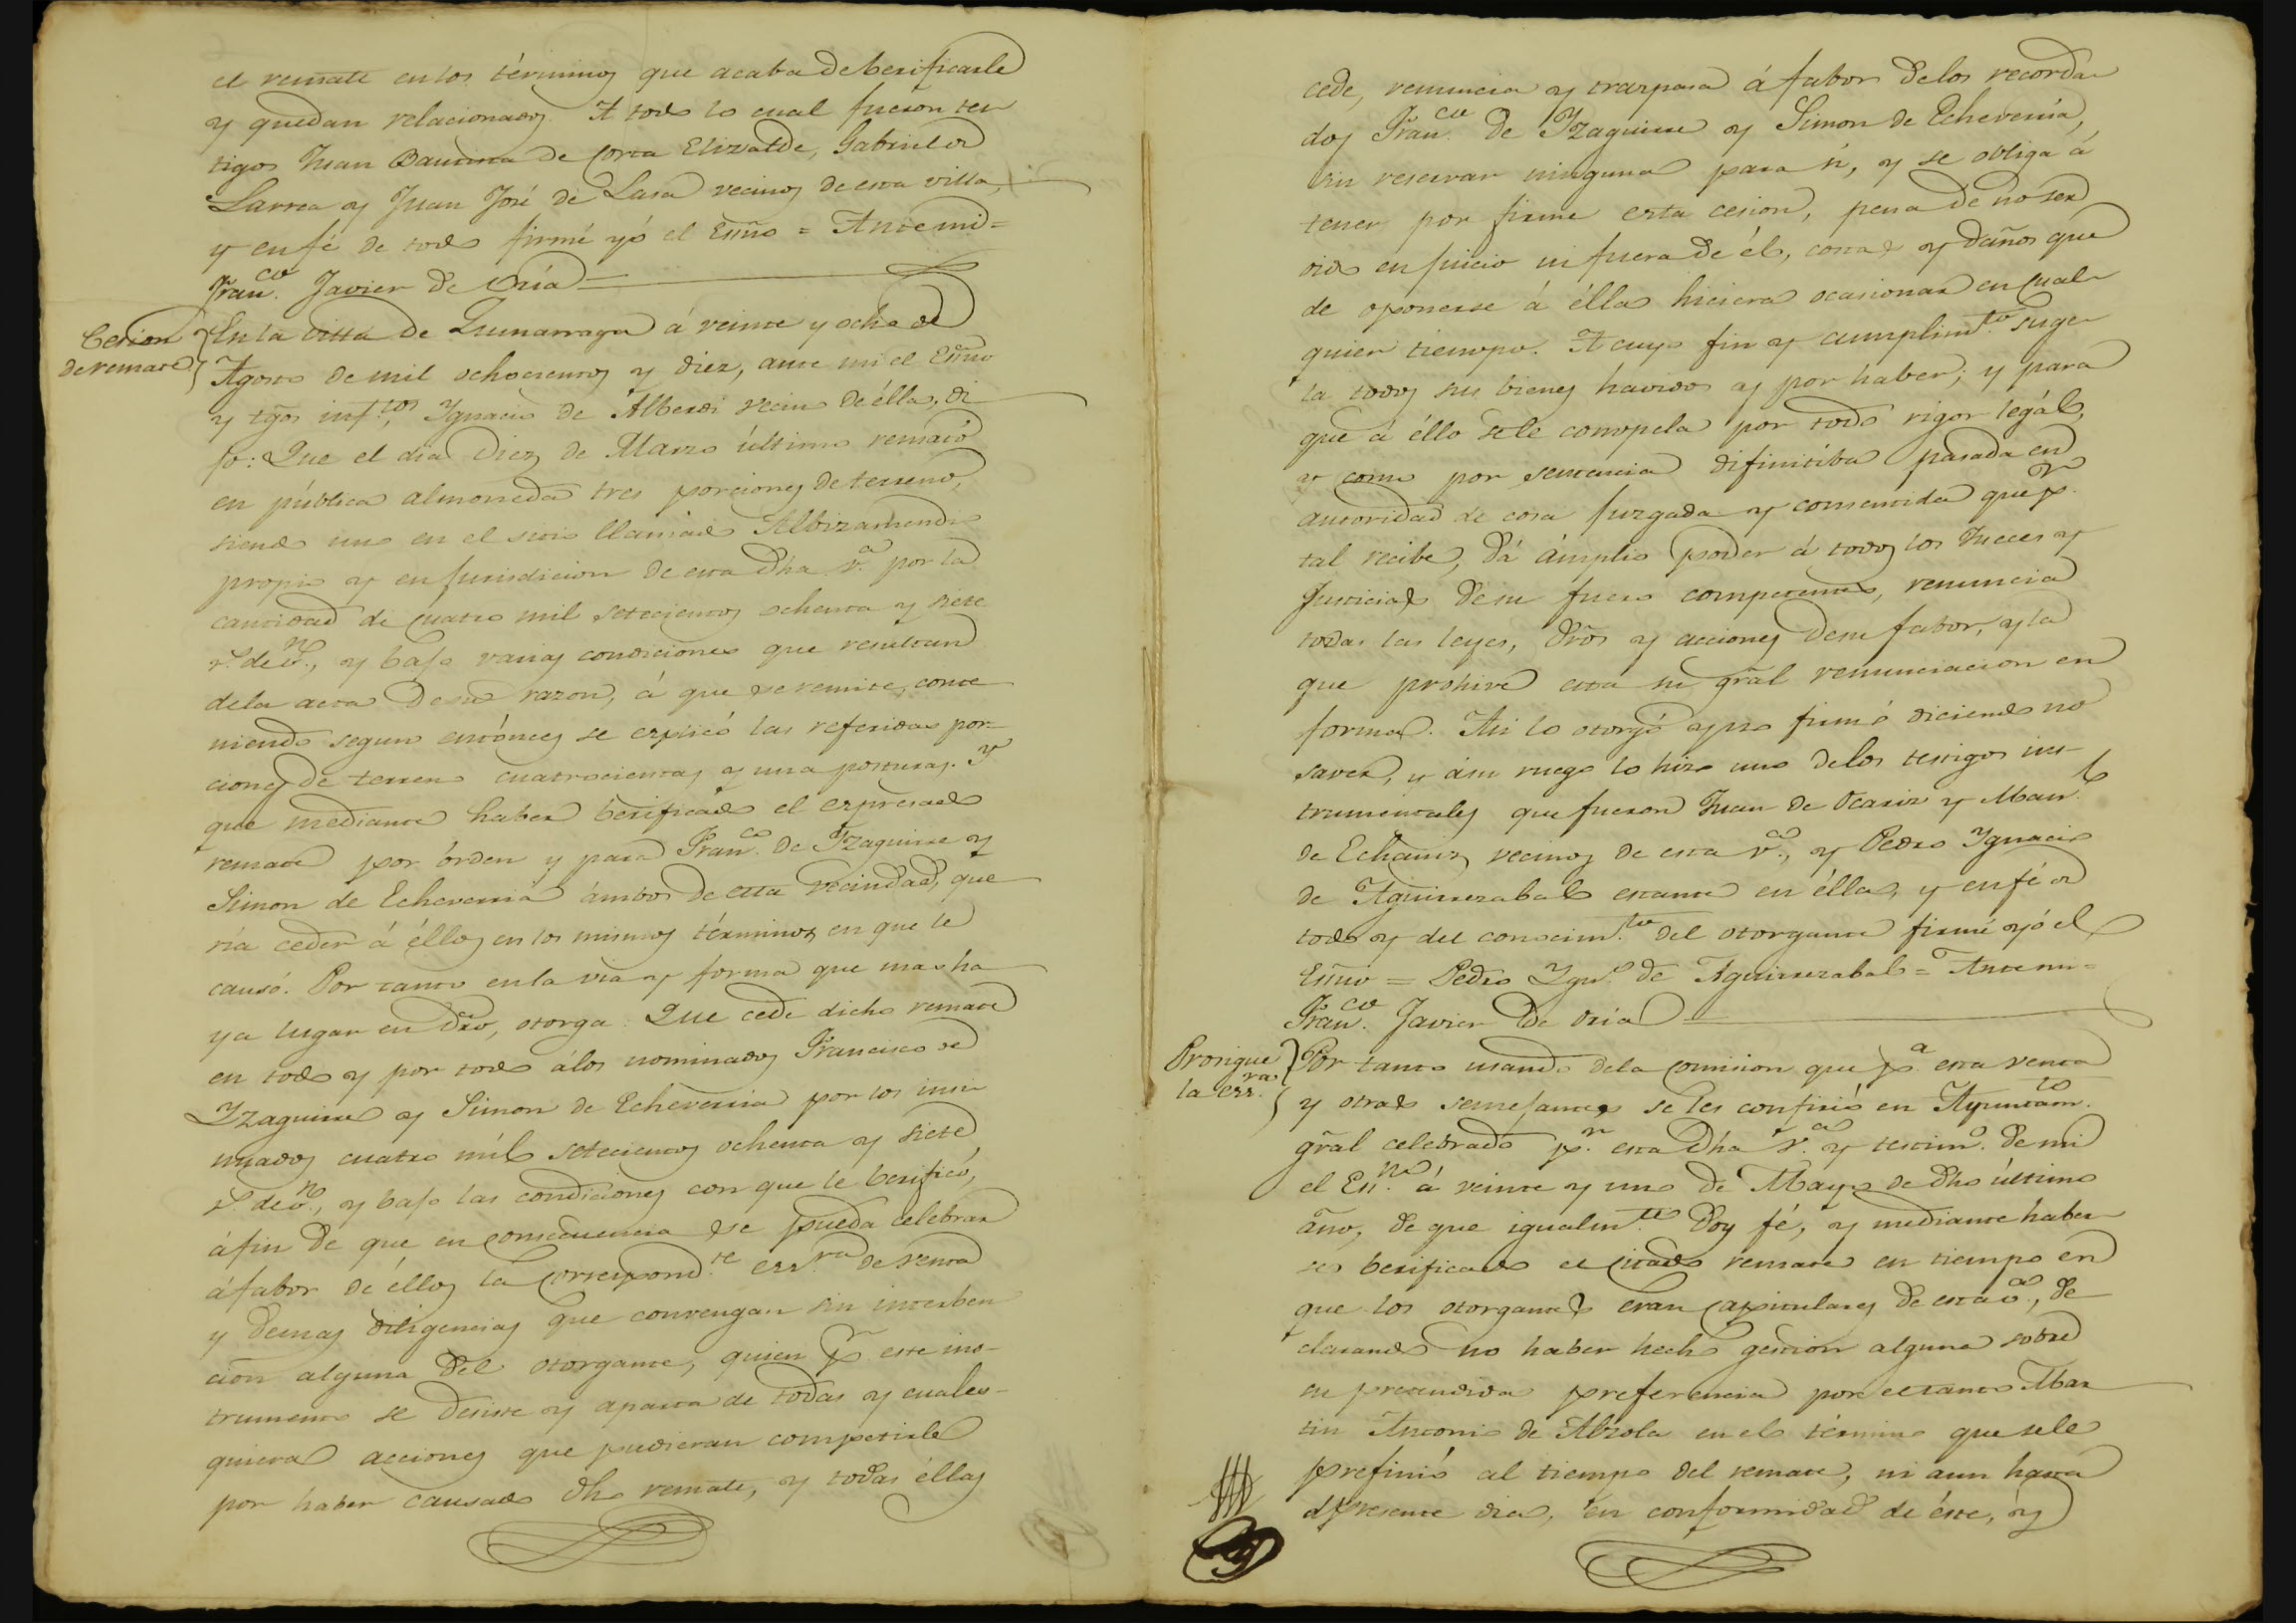 el remate en los términos que acaba de berificarle
y quedan relacionados. A todo lo cual fueron tes
tigos Juan Bautista de Corta Elizalde, Gabriel de
Larrea y Juan José de Lasa vecinos de esta villa,
y en fé de todo firmé yó el Essño = Antemi =
Fran.co Javier de Oria
Cesion
de remate
En la villa de Zumarraga á veinte y ocho de
Agosto de mil ochocientos y diez, ante mi el Essño
y tgos inf.tos, Ygnacio de Alberdi vecino de élla, di
jo: Que el dia Diez de Marzo último remató
en pública almoneda tres porciones de terreno,
siendo uno en el sitio llamado Albizamendi
propio y en jurisdicion de esta dha v.a por la
cantidad de cuatro mil setecientos ochenta y siete
r.s de v.n, y bajo varias condiciones que resultan
de la acta de su razon, á que se remite, conte
niendo segun entónces se explicó las referidas por-
ciones de terreno cuatrocientas y una posturas. Y
que mediante haber berificado el expresado
remate por órden y para Fran.co de Yzaguirre y
Simon de Echeverria ámbos de esta vecindad, que
ría ceder á éllos en los mismos términos en que le
causó. Por tanto en la via y forma que mas ha
ya lugar en dro, otorga: Que cede dicho remate
en todo y por todo á los nominados Francisco de
Yzaguirre y Simon de Echeverria por los insi
nuados cuatro mil setecientos ochenta y siete
r.s de v.n, y bajo las condiciones con que le berificó,
á fin de que en consecuencia se pueda celebrar
á fabor de éllos la correspond.te ess.ra de venta
y demas diligencias que convengan sin interben
cion alguna del otorgante, quien p.r este ins-
trumento se desiste y aparta de todas y cuales-
quiera acciones que pudieran competirle
por haber causado dho remate, y todas éllas
cede, renuncia y traspasa á fabor de los recorda
dos Fran.co de Yzaguirre y Simon de Echeverria,
sin reservar ninguna para si, y se obliga á
tener por firme esta cesion, pena de no ser
oido en juicio ni fuera de él, costas y daños que
de oponerse á élla hiciera ocasionar en cual
quier tiempo. A cuyo fin y cumplim.to suge
ta todos sus bienes havidos y por haber; y para
que á éllo se le compela por todo rigor legál,
y como por sentencia difinitiba pasada en
autoridad de cosa juzgada y consentida que p.r
tal recibe, dá ámplio poder á todos los Jueces y
Justicias de su fuero competentes, renuncia
todas las leyes, dros y acciones de su fabor, y la
que prohive esta su gral renunciacion en
forma. Asi lo otorgó y no firmó diciendo no
saver, y á su ruego lo hizo uno de los testigos ins-
trumentales que fueron Juan de Ocariz y Man.l
de Echaniz vecinos de esta v.a, y Pedro Ygnacio
de Aguirrezabal estante en élla, y en fé de
todo y del conocim.to del otorgante firmé yó el
Essño = Pedro Ygn.o de Aguirrezabal = Antemi =
Fran.co Javier de Oria
Prosigue
la ess.ra
Por tanto usando de la comision que p.a esta venta
y otras semejantes se les confirió en Ayuntam.to
gral celebrado p.r esta dha v.a y testim.o de mi
el Ess.no á veinte y uno de Mayo de dho último
año, de que igualm.te doy fé, y mediante haber
se berificado el citado remate en tiempo en
que los otorgantes eran capitulares de esta v.a, de
clarando no haber hecho gestion alguna sobre
su pretendida preferencia por el tanto Mar
tin Antonio de Alzola en el término que se le
prefinió al tiempo del remate, ni aun hasta
el presente dia, en conformidad de éste, y